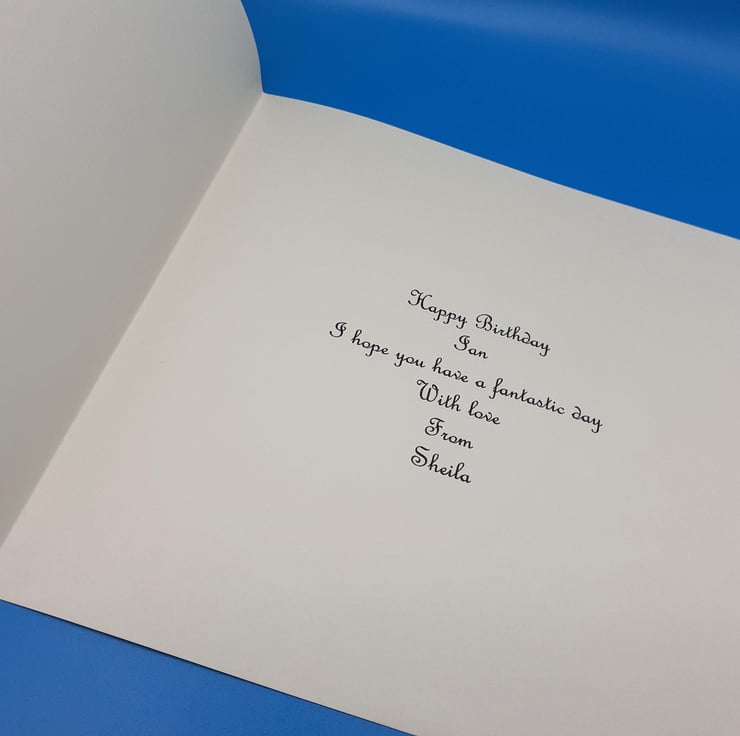 Happy Birthday
Ian
I hope you have a fantastic day
With love
From
Sheila